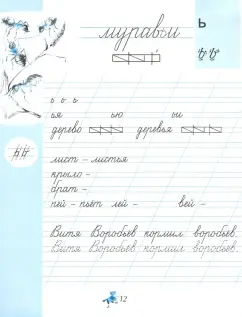 муравьи
ь
ь ь ь
ья ью ьи
дерево деревья
лист – листья
крыло –
брат –
пей – пьёт лей – вей –
Витя Воробьёв кормил воробьёв.
Витя Воробьёв кормил воробьёв.
12